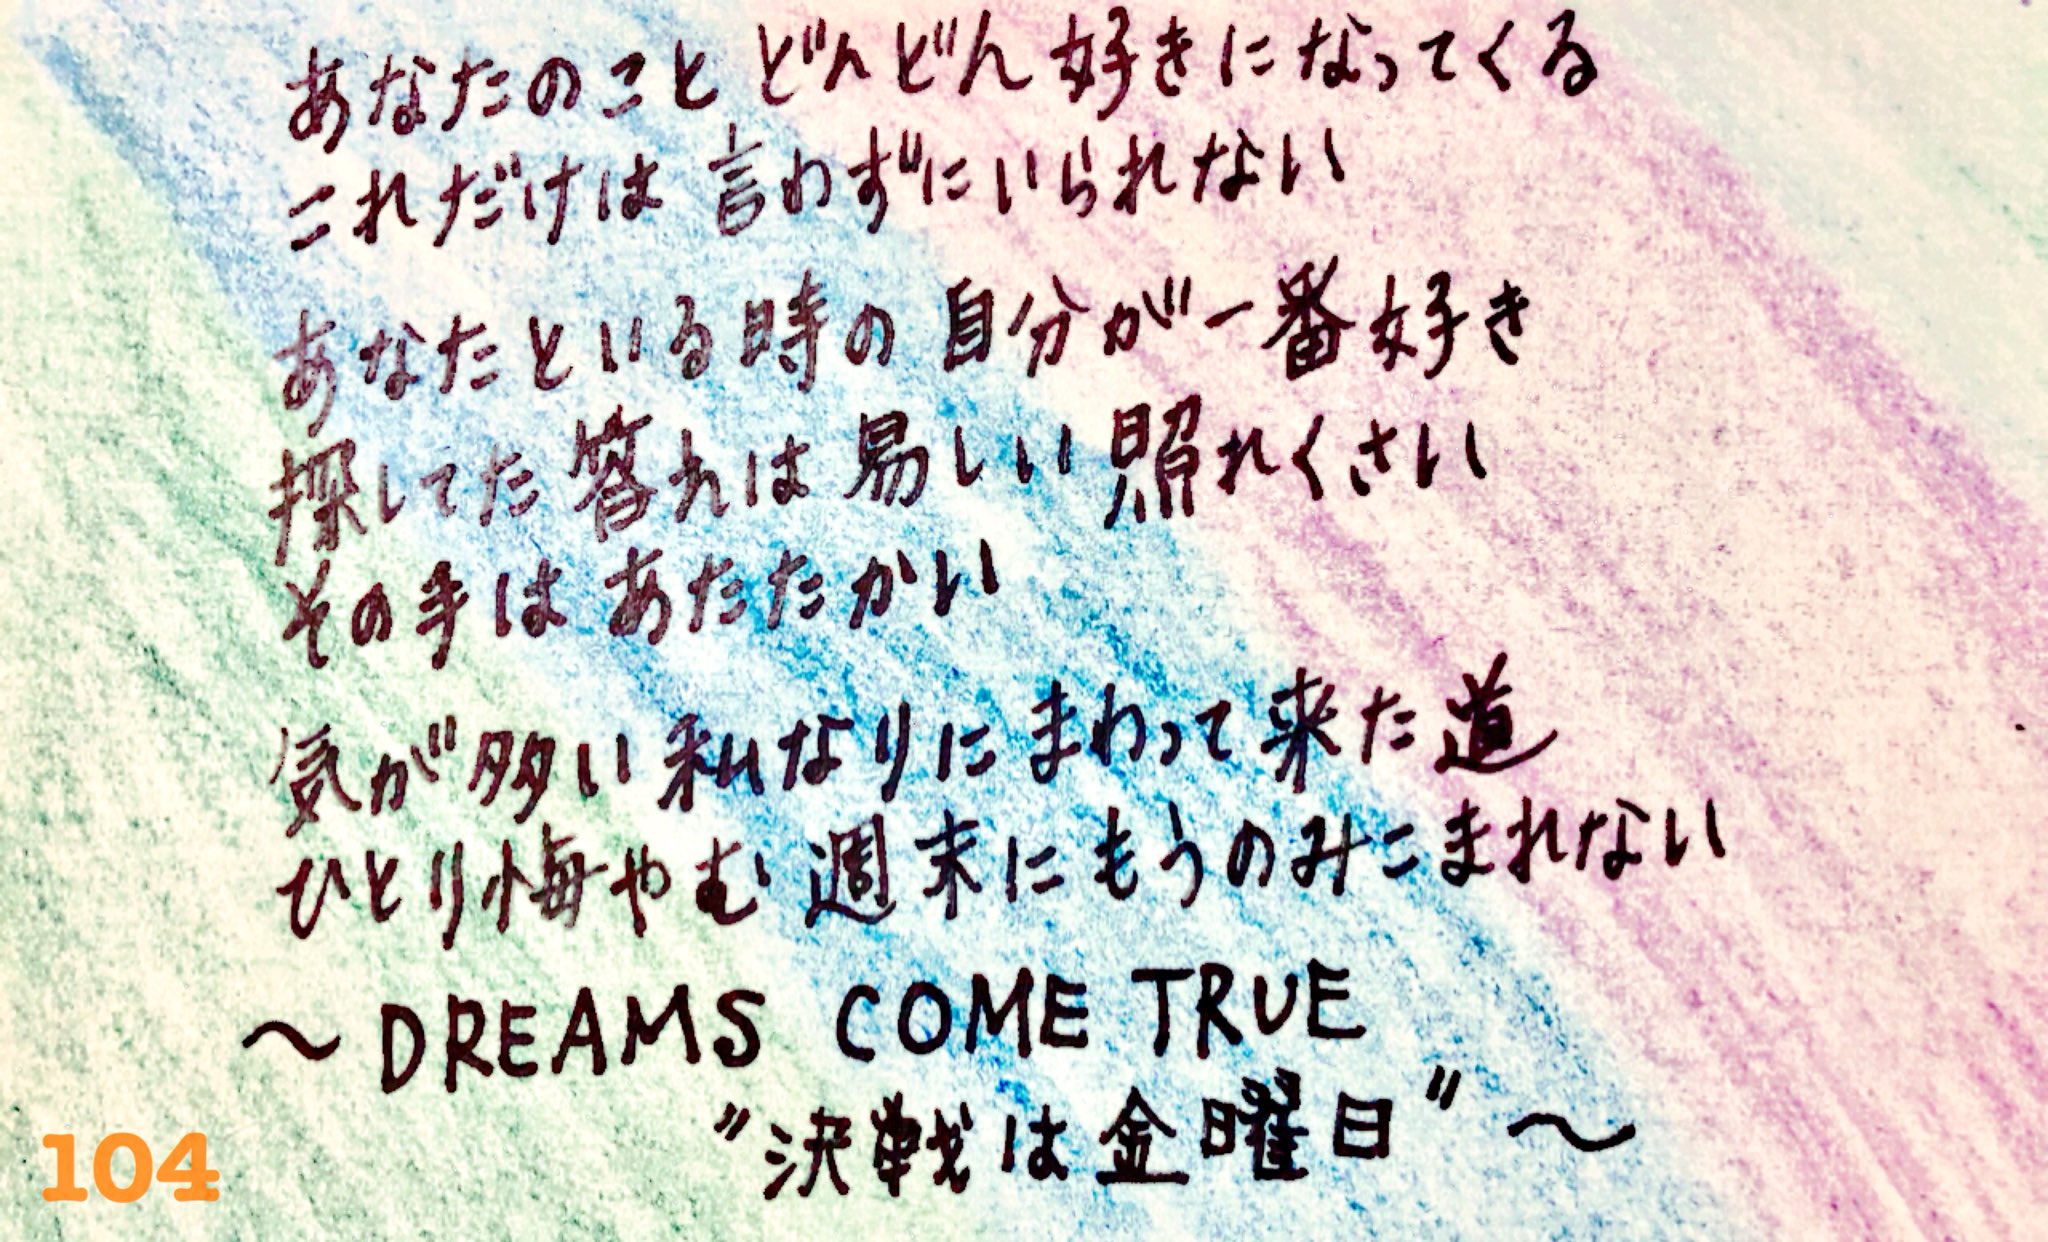 あなたのこと どんどん 好きになってくる
これだけは 言わずにいられない
あなたといる時の 自分が一番好き
探してた 答えは 易しい 照れくさい
その手は あたたかい
気が多い 私なりに まわって 来た道
ひとり悔やむ 週末に もうのみこまれない
〜DREAMS COME TRUE
"決戦は金曜日"〜
104